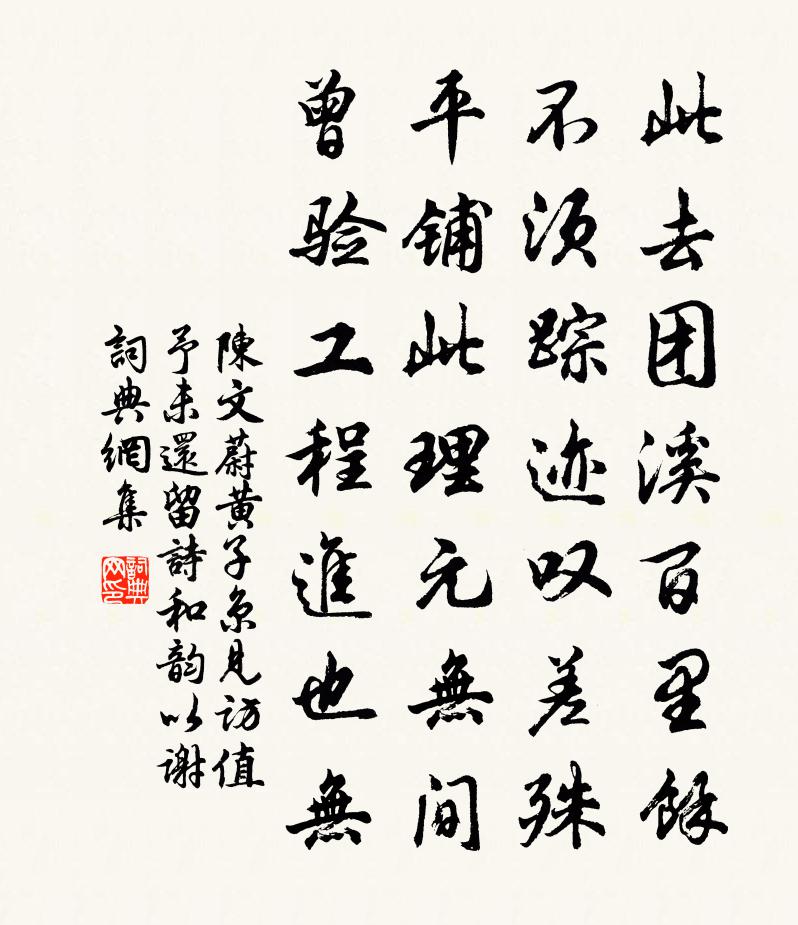 此去团溪百里馀
不须踪迹叹差殊
平铺此理元無间
曾验工程進也無
陳文蔚黄子京見访值
予未還留詩和韵以谢
詞典網集
詞典网印